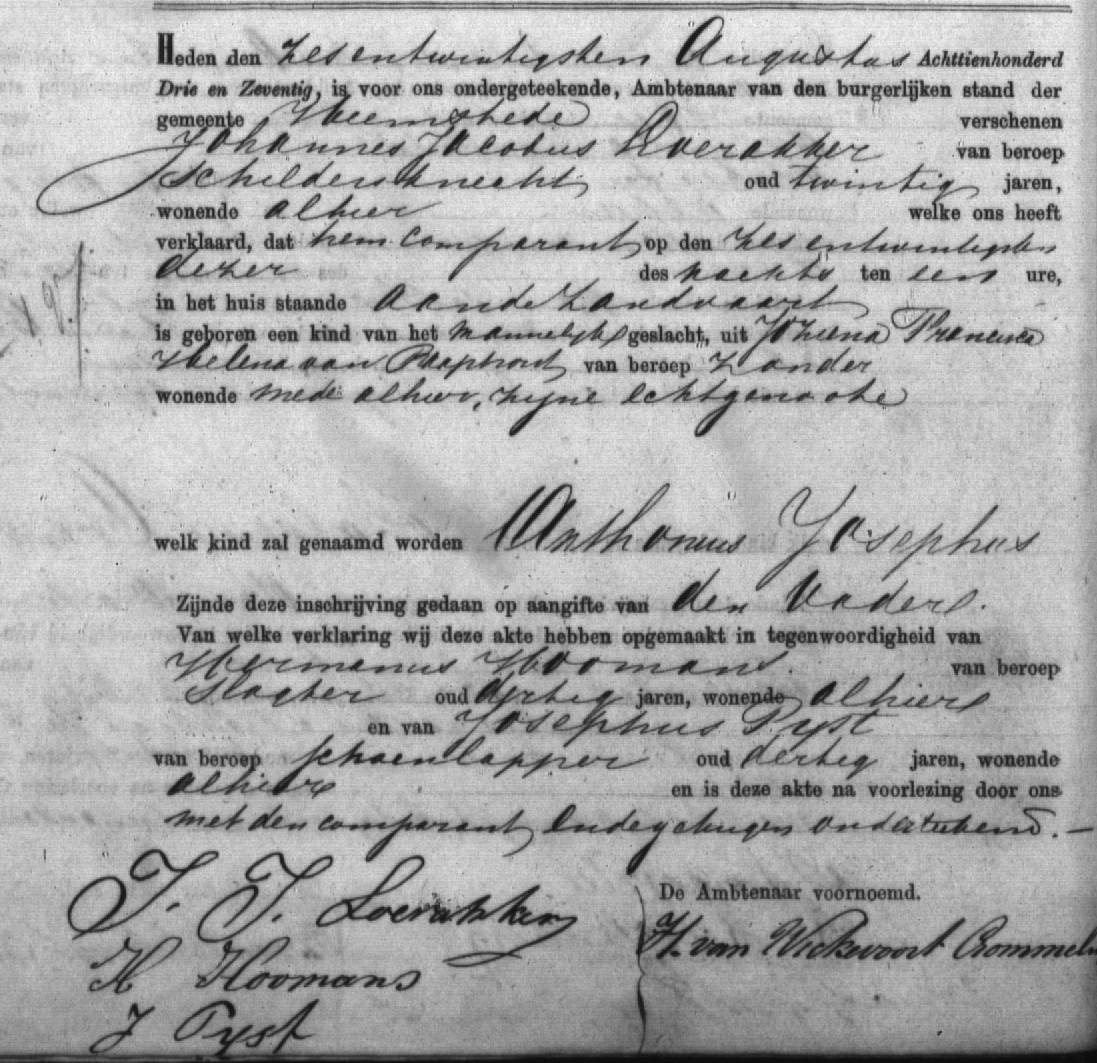 Heden den zesentwintigsten Augustus Achttienhonderd
Drie en Zeventig, is voor ons ondergeteekende, Ambtenaar van den burgerlijken stand der
gemeente Heemstede verschenen
Johannes Jacobus Loerakker van beroep
Schildersknecht oud twintig jaren,
wonende alhier welke ons heeft
verklaard, dat hem comparant op den zesentwintigsten
dezer des nachts ten een ure,
in het huis staande aan de Zandvaart
is geboren een kind van het mannelijk geslacht, uit Johanna Francisca
Helena van Raaphorst van beroep zonder
wonende mede alhier, zijne echtgenoote
welk kind zal genaamd worden Anthonius Josephus
Zijnde deze inschrijving gedaan op aangifte van den Vader.
Van welke verklaring wij deze akte hebben opgemaakt in tegenwoordigheid van
Hermanus Hoomans van beroep
Slagter oud dertig jaren, wonende alhier
en van Josephus Pyst
van beroep schoenlapper oud dertig jaren, wonende
alhier en is deze akte na voorlezing door ons
met den comparant en de getuigen onderteekend.
J. J. Loerakker
De Ambtenaar voornoemd.
H. van Wickevoort Crommelin
H Hoomans
J Pyst